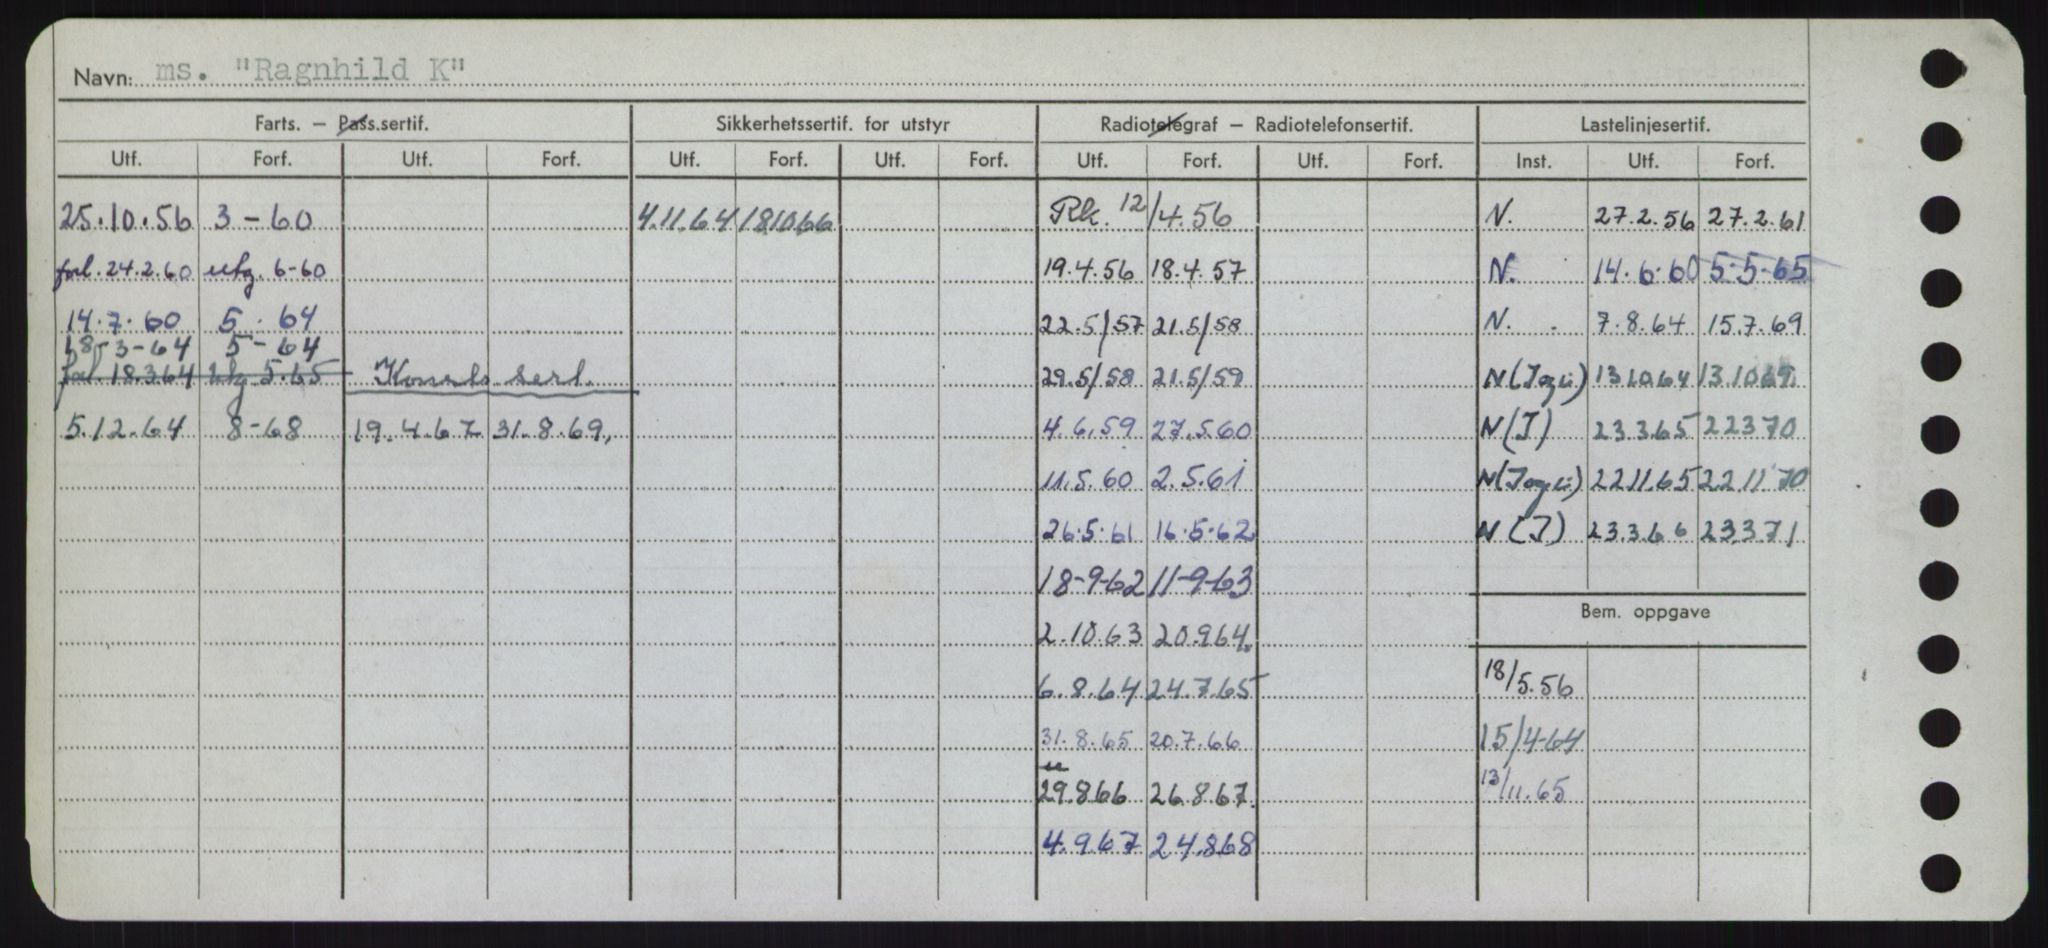 Navn: ms. "Ragnhild K"
Farts. – Pass.sertif. Sikkerhetssertif. for utstyr Radiotelegraf – Radiotelefonsertif. Lastelinjesertif.
Utf. Forf. Utf. Forf. Utf. Forf. Utf. Forf. Utf. Forf. Utf. Forf. Inst. Utf. Forf.
25.10.56 3-60 4.11.64 181066 Rk. 12/4.56 N. 27.2.56 27.2.61
forl. 24.2.60 utg. 6-60 19.4.56 18.4.57 N. 14.6.60 5.5-65
14.7.60 5. 64 22.5/57 21.5/58 N. 7.8.64 15.7.69
18-3-64 5-64
forl 18.3.64 utg 5.65 Konsts sert. 29.5/58 21.5/59 N( 13.10.64 13.10.69.
5.12.64 8-68 19.4.67 31.8.69, 4.6.59 27.5.60 N(I) 23.3.65 22370
11.5.60 2.5.61 N( 22.11.65 22.11.70
26.5.61 16.5.62 N(I) 23.3.66 23.3.71
18-9-62 11-9-63
Bem. oppgave
2.10.63 20.9.64.
6.8.64 24.7.65 18/5.56
31.8.65 20.7.66 15/4-64
29.8.66 26.8.67. 13/11.65
4.9.67 24.8.68